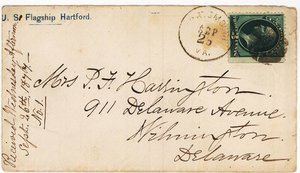 U. S. Flagship Hartford.
SEP
25
VA.
Mrs P. F. Harrington
911 Delaware Avenue.
Wilmington
Delaware
Received Wednesday afternoon
Sept. 26th 1877
No. 1